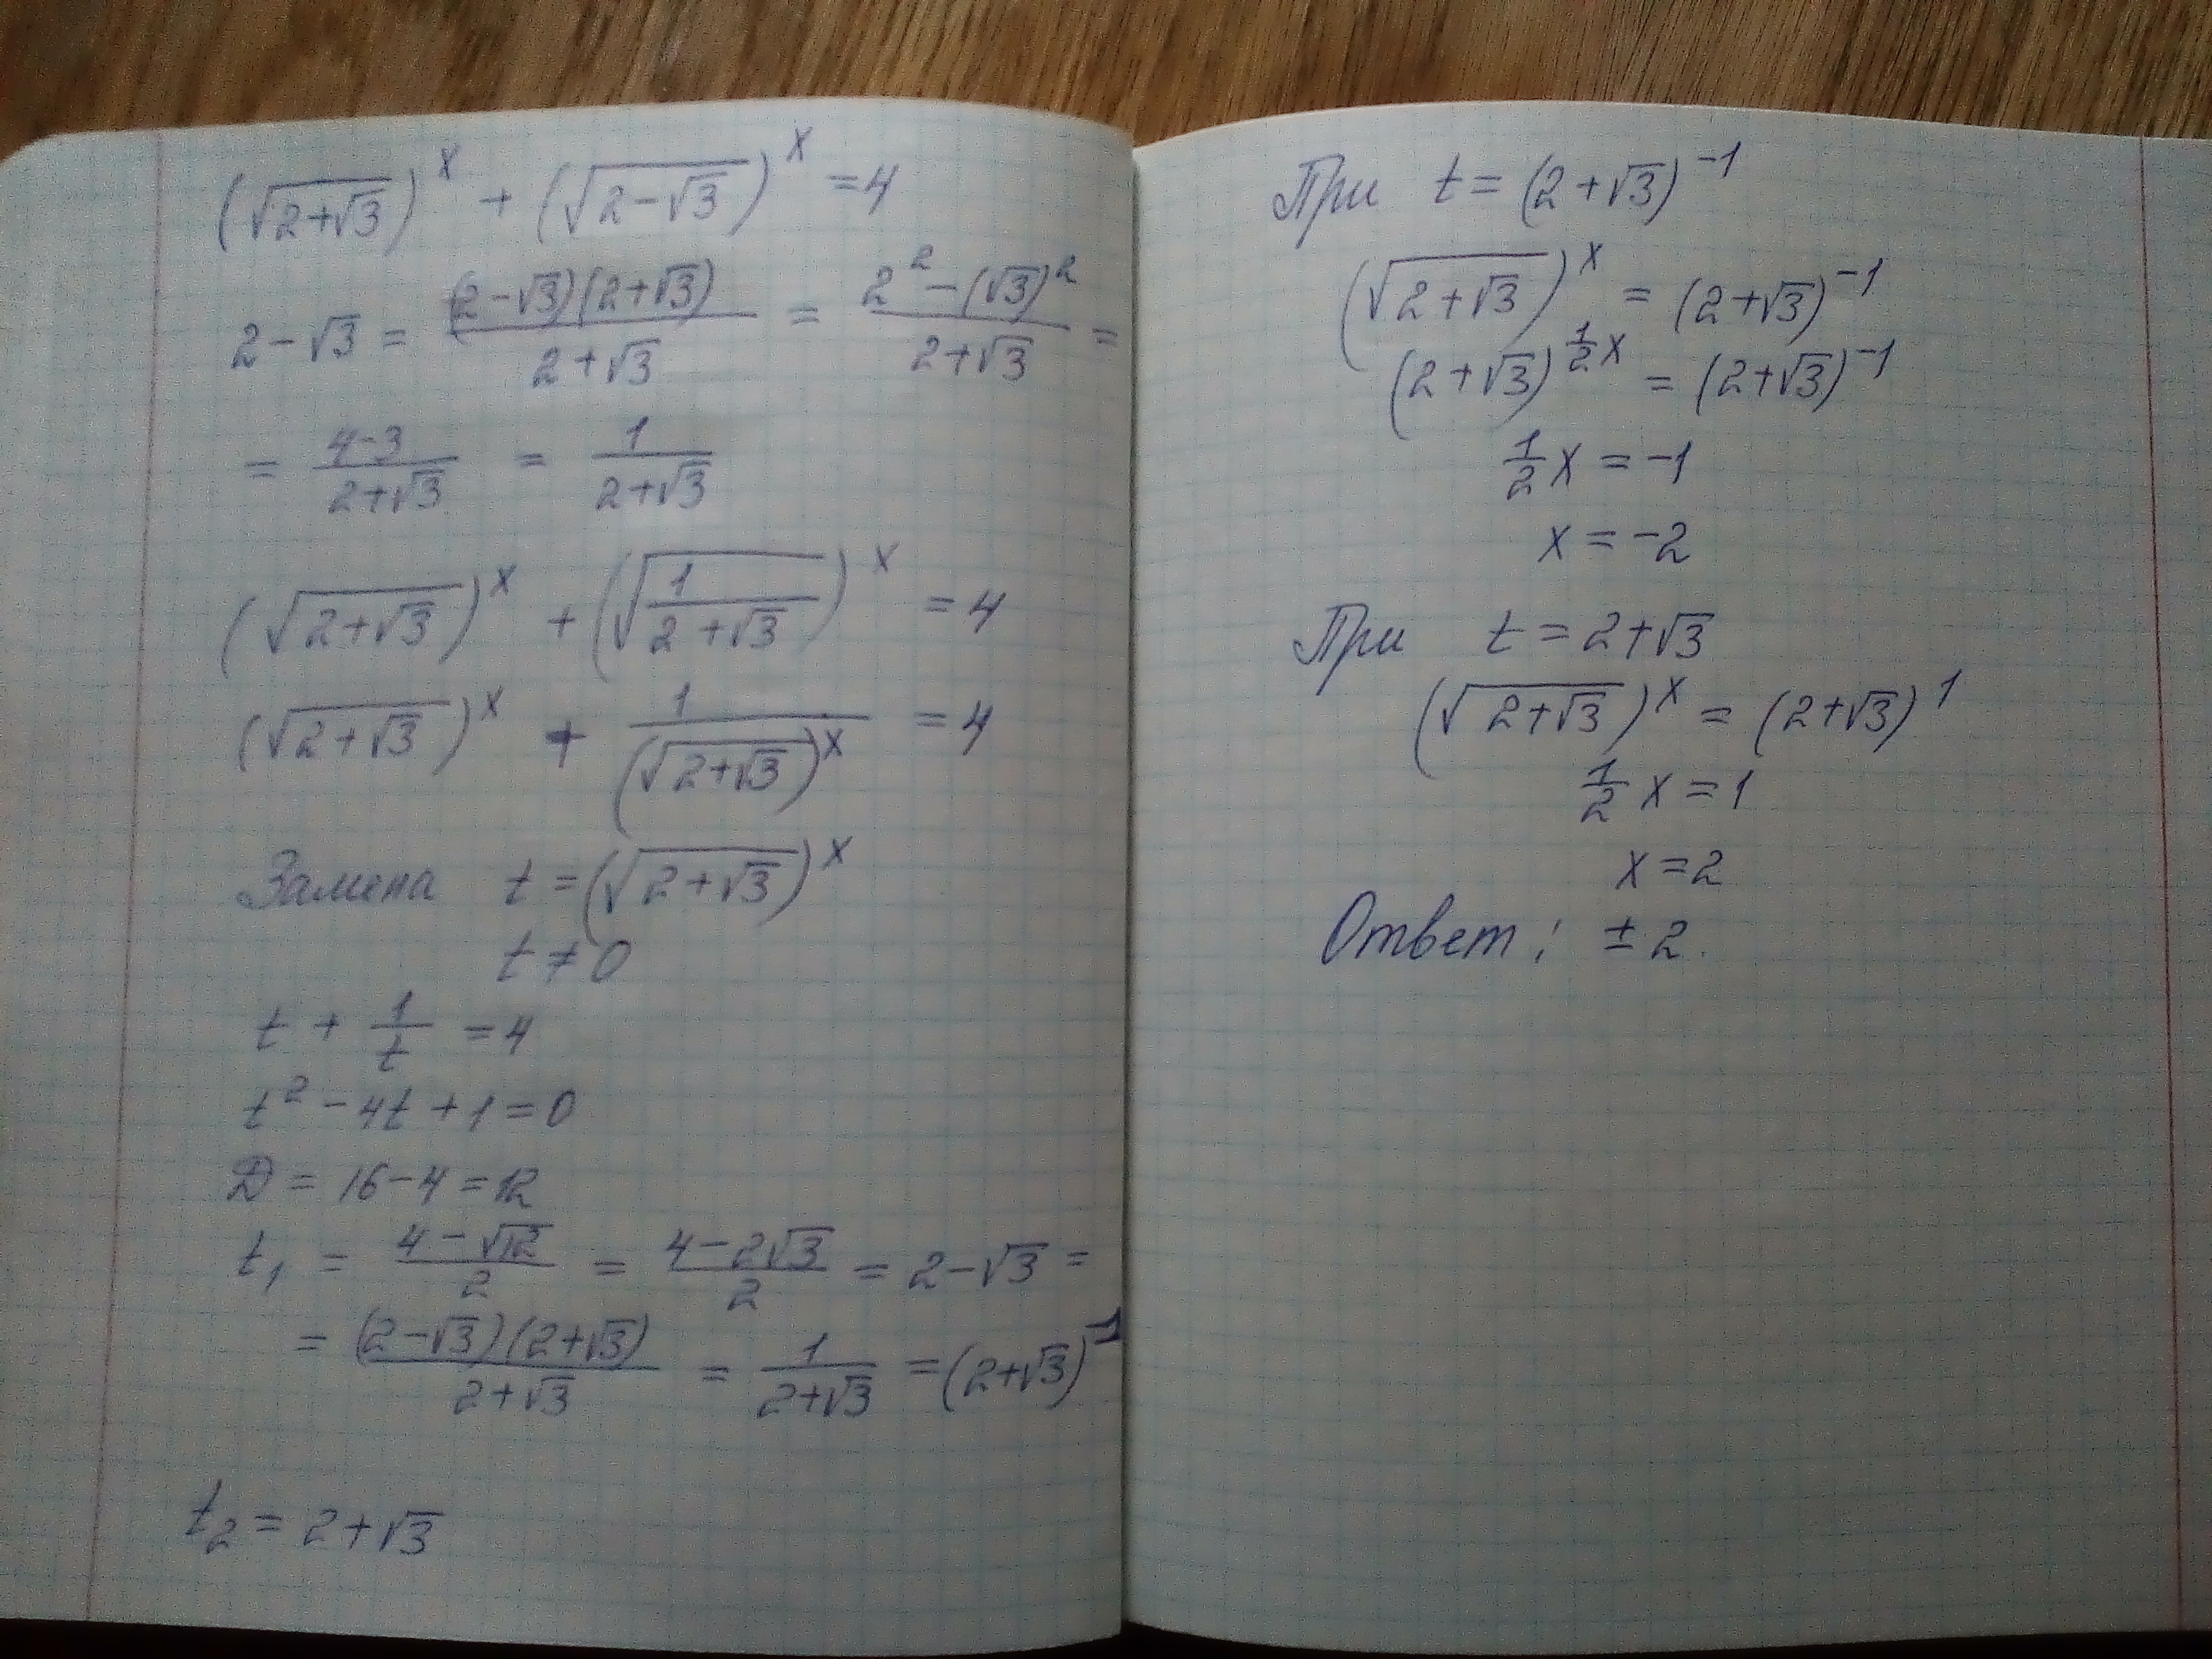 (√(2+√3))^x + (√(2-√3))^x = 4
2-√3 = ((2-√3)(2+√3))/(2+√3) = (2^2-(√3)^2)/(2+√3) =
= (4-3)/(2+√3) = 1/(2+√3)
(√(2+√3))^x + (√(1/(2+√3)))^x = 4
(√(2+√3))^x + 1/(√(2+√3))^x = 4
Замена t = (√(2+√3))^x
t ≠ 0
t + 1/t = 4
t^2 - 4t + 1 = 0
D = 16-4 = 12
t_1 = (4-√12)/2 = (4-2√3)/2 = 2-√3 =
= ((2-√3)(2+√3))/(2+√3) = 1/(2+√3) = (2+√3)^-1
t_2 = 2+√3
При t = (2+√3)^-1
(√(2+√3))^x = (2+√3)^-1
(2+√3)^(1/2 x) = (2+√3)^-1
1/2 x = -1
x = -2
При t = 2+√3
(√(2+√3))^x = (2+√3)^1
1/2 x = 1
x = 2
Ответ: ± 2.